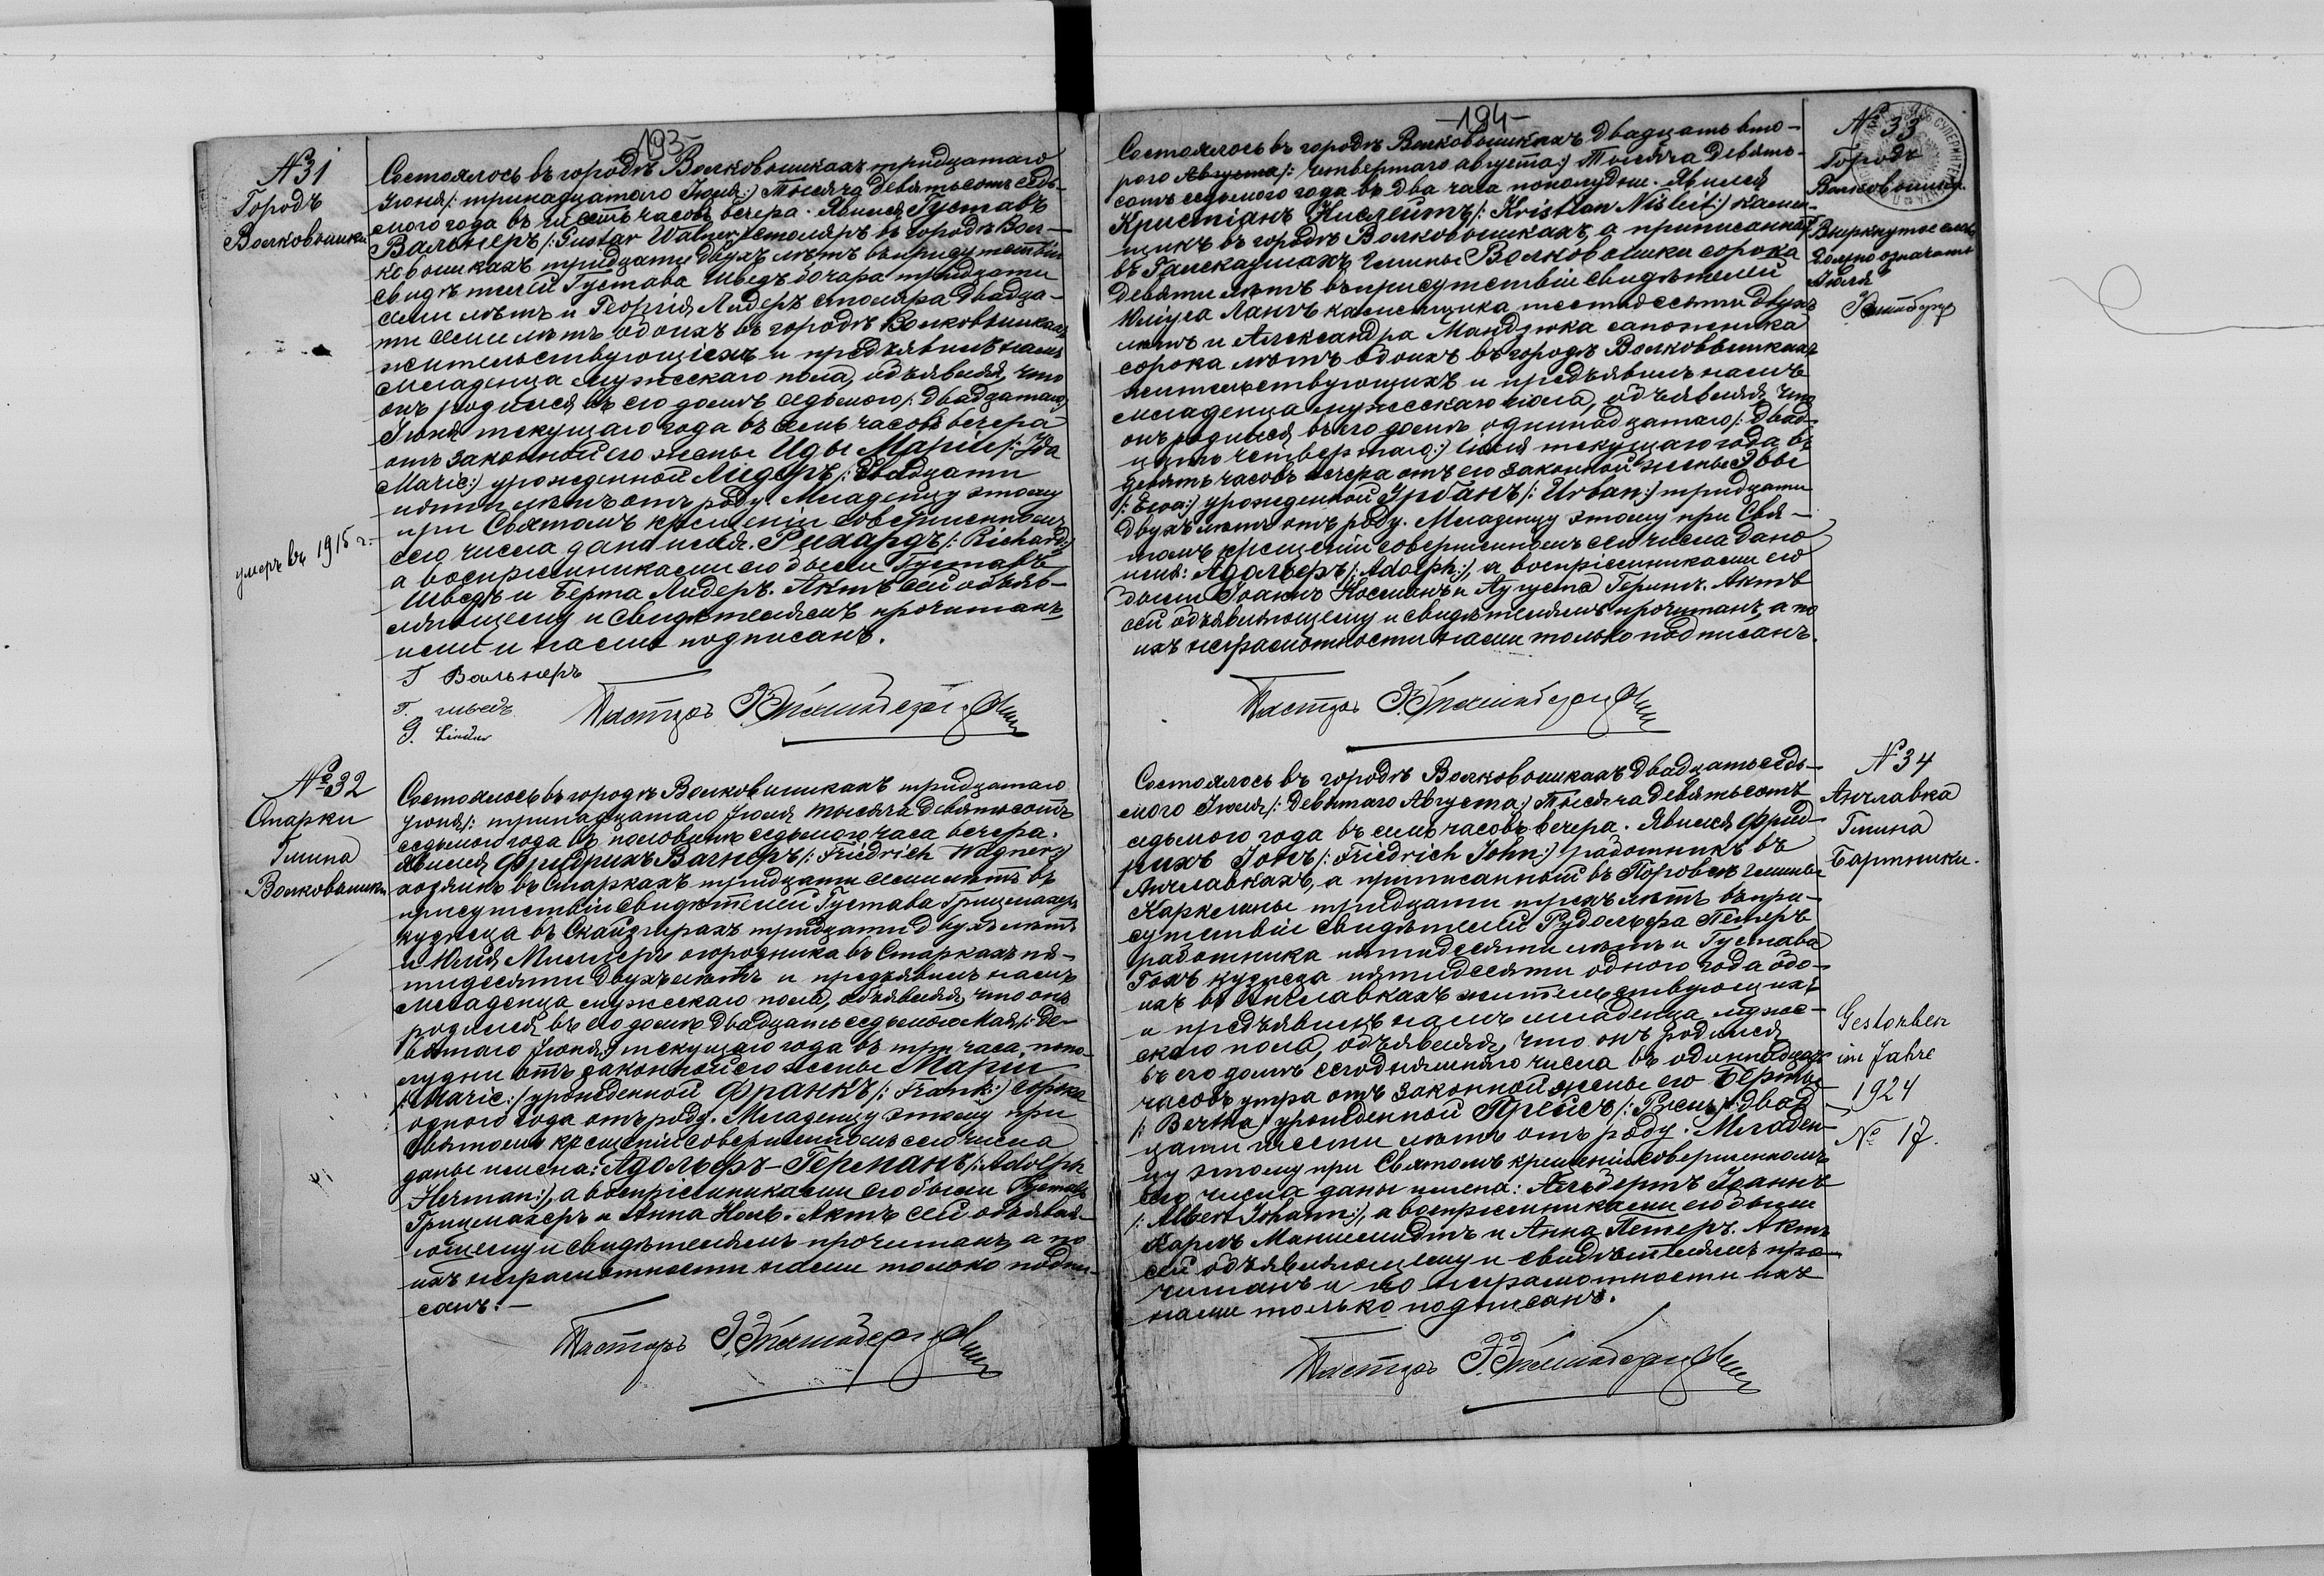 193
№ 31
Городъ
Волковышки
Состоялось въ городѣ Волковышкахъ тридцатаго
Іюня /: тринадцатаго Іюля :/ тысяча девятьсотъ седь-
мого года въ шесть часовъ вечера. Явился Густавъ
Вальнеръ /: Gustav Walner :/ столяръ въ городѣ Вол-
ковышкахъ тридцати двухъ лѣтъ въ присутствіи
свидѣтелей Густава Шведъ бочара тридцати
семи лѣтъ и Георгія Лидеръ столяра двадца-
ти семи лѣтъ обоихъ въ городѣ Волковышкахъ
жительствующихъ и предъявилъ намъ
младенца мужескаго пола, объявляя, что
онъ родился въ его домѣ седьмого /: двадцатаго
Іюня текущаго года въ семь часовъ вечера
отъ законной его жены Иды Маріи /: Ida
Marie :/ урожденной Лидеръ /: двадцати
пяти лѣтъ отъ роду. Младенцу этому
при Святомъ крещеніи совершенномъ
сего числа дано имя: Рихардъ /: Richard :/
а воспріемниками его были Густавъ
Шведъ и Берта Лидеръ. Актъ сей объяв-
ляющему и свидѣтелямъ прочитанъ,
ими и нами подписанъ.
умеръ въ 1915 г.
Г Вальнеръ
Г. шведъ
G. Linder
Пасторъ
№ 32
Старки
Гмина
Волковышки
Состоялось въ городѣ Волковышкахъ тридцатаго
Іюня /: тринадцатаго Іюля тысяча девятьсотъ
седьмого года въ половинѣ седьмого часа вечера.
Явился Фридрихъ Вагнеръ /: Friedrich Wagner :/
хозяинъ въ Старкахъ тридцати семи лѣтъ въ
присутствіи свидѣтелей Густава Грицмахеръ
кузнеца въ тридцати двухъ лѣтъ
и Юлія Миллеръ огородника въ Старкахъ пя-
тидесяти двухъ лѣтъ и предъявилъ намъ
младенца мужескаго пола, объявляя, что онъ
родился въ его домѣ двадцать седьмого Мая /: де-
вятаго Іюня :/ текущаго года въ три часа попо-
лудни отъ законной его жены Маріи
/: Marie :/ урожденной Франкъ /: Frank :/ сорока
одного года отъ роду. Младенцу этому при
Святомъ крещеніи совершенномъ сего числа
даны имена: Адольфъ-Германъ /: Adolph
Herman :/, а воспріемниками его были Густавъ
Грицмахеръ и Анна Ноль. Актъ сей объявля-
ющему и свидѣтелямъ прочитанъ, а по
ихъ неграмотности нами только подпи-
санъ. —
Пасторъ
-194-
№ 33
Городъ
Волковышки.
Вычеркнутое слово
должно означать
Іюля
Состоялось въ городѣ Волковышкахъ двадцать вто-
рого Августа /: четвертаго августа :/ тысяча девять-
сотъ седьмого года въ два часа пополудни. Явился
Кристіанъ Нислейтъ /: Kristian Nisleit :/ камен-
щикъ въ городѣ Волковышкахъ, а приписанный
въ гмины Волковышки сорока
девяти лѣтъ въ присутствіи свидѣтелей
Юліуса Лангъ каменщика шестидесяти двухъ
лѣтъ и Александра Мандзюка сапожника
сорока лѣтъ обоихъ въ городѣ Волковышкахъ
жительствующихъ и предъявилъ намъ
младенца мужескаго пола, объявляя, что
онъ родился въ его домѣ одиннадцатаго /: двад-
цать четвертаго :/ Іюля текущаго года въ
девять часовъ вечера отъ его законной жены Эвы
/: Ewa :/ урожденной Урбанъ /: Urban :/ тридцати
двухъ лѣтъ отъ роду. Младенцу этому при Свя-
томъ крещеніи совершенномъ сего числа дано
имя: Адольфъ /: Adolph :/, а воспріемниками его
были Іоаннъ Носманъ и Августа Геринъ. Актъ
сей объявляющему и свидѣтелямъ прочитанъ, а по
ихъ неграмотности нами только подписанъ.
Пасторъ
№ 34
Анчлавка
Гмина
Бартники.
Состоялось въ городѣ Волковышкахъ двадцать седь-
мого Іюля /: девятаго Августа :/ тысяча девятьсотъ
седьмого года въ семь часовъ вечера. Явился Фрид-
рихъ Іонъ /: Friedrich John :/ работникъ въ
Анчлавкахъ, а приписанный въ гмины
Каркелины тридцати трехъ лѣтъ въ при-
сутствіи свидѣтелей Рудольфа Петеръ
работника пятидесяти лѣтъ и Густава
Гохъ кузнеца пятидесяти одного года обо-
ихъ въ Анчлавкахъ жительствующихъ
и предъявилъ намъ младенца муже-
скаго пола, объявляя, что онъ родился
въ его домѣ сегодняшняго числа въ одиннадцать
часовъ утра отъ законной жены его Берты
/: Bertha :/ урожденной Прейсъ /: Preuss :/ двад-
цати шести лѣтъ отъ роду. Младен-
цу этому при Святомъ крещеніи совершенномъ
сего числа даны имена: Альбертъ Іоаннъ
/: Albert Johann :/, а воспріемниками его были
Карлъ и Анна Петеръ. Актъ
сей объявляющему и свидѣтелямъ про-
читанъ и по неграмотности ихъ
нами только подписанъ.
Gestorben
im Jahre
1924
№ 17.
Пасторъ